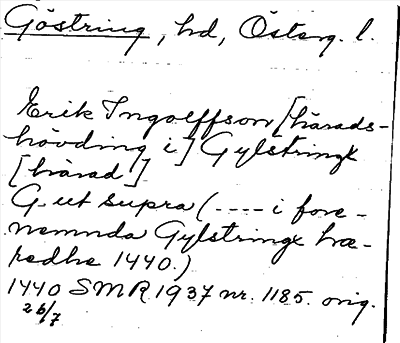 Göstring, hd, Österg. l.
Erik Ingolffson [härads-
hövding i] Gylstringx
[härad]
G. ut supra (---- i fore-
nemnda Gylstringx hæ-
redhe 1440.)
1440 SMR 1937 nr. 1185. orig.
26/7